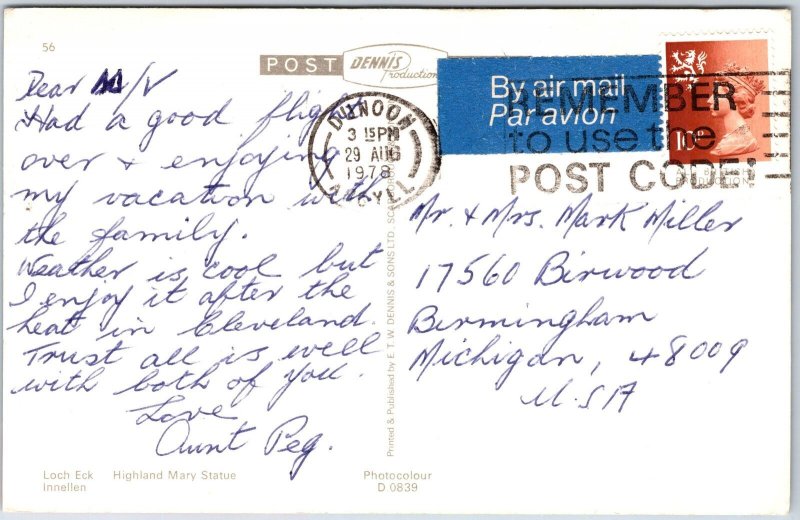 56
POST DENNIS Productions
By air mail
Par avion
REMEMBER
to use the
POST CODE!
10P
DUNOON
3 15PM
29 AUG
1978
ARGYLL
Dear M/V
Had a good flight
over + enjoying
my vacation with
the family.
Weather is cool but
I enjoy it after the
heat in Cleveland.
Trust all is well
with both of you.
Love
Aunt Peg.
Mr. + Mrs. Mark Miller
17560 Birwood
Bermingham
Michigan, 48009
U.SA
Printed & Published by E.T.W. DENNIS & SONS LTD.
Loch Eck Highland Mary Statue
Innellen
Photocolour
D 0839